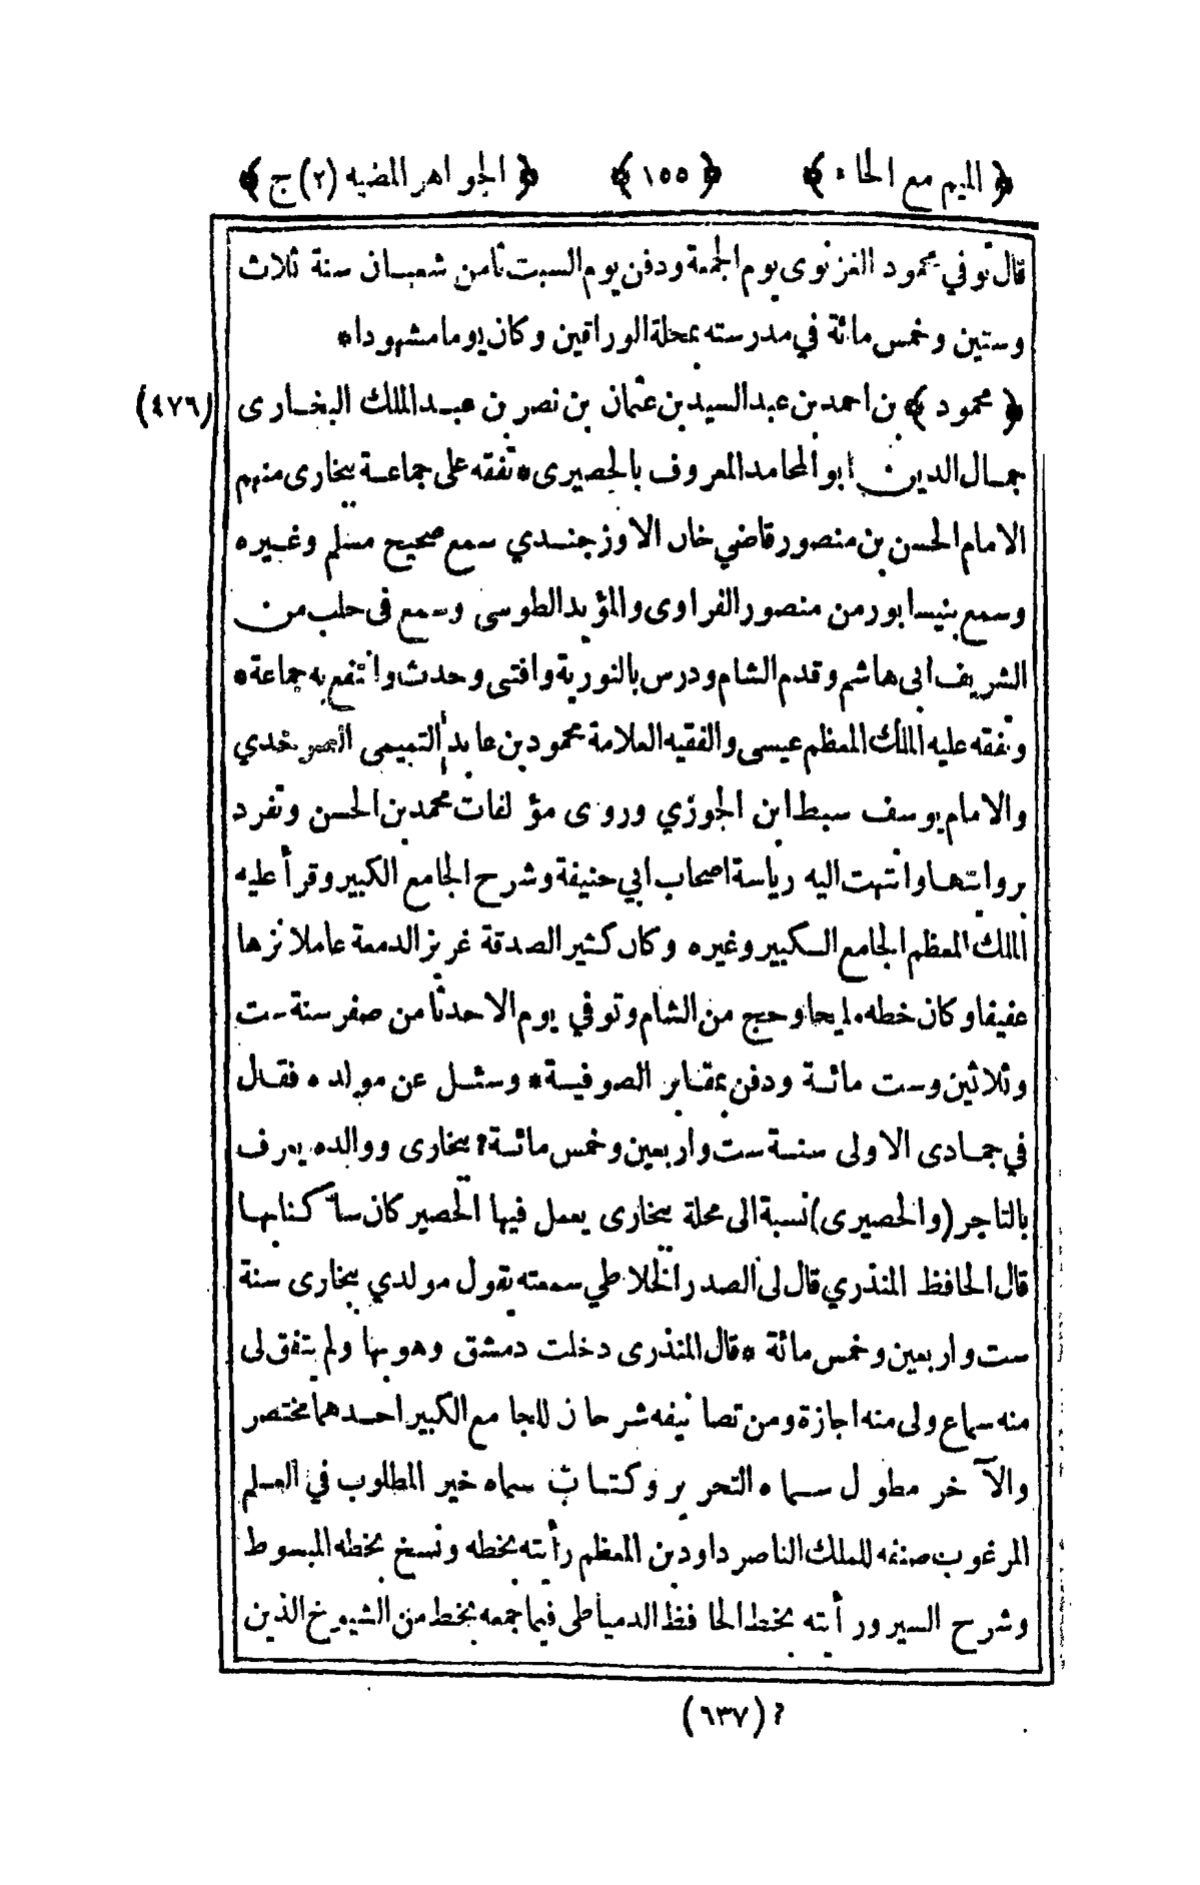 ﴿ الميم مع الحاء ﴾ ﴿ ١٥٥ ﴾ ﴿ الجواهر المضيه (٢) ج ﴾
قال توفي محمود الغزنوى يوم الجمعة ودفن يوم السبت ثامن شعبان سنة ثلاث
وستين وخمس مائة في مدرسته بمحلة الوراقين وكان يوما مشهودا*
﴿ محمود ﴾ بن احمد بن عبد السيد بن عثمان بن نصر بن عبد الملك البخارى (٤٧٦)
جمال الدين ابو المحامد المعروف بالحصيرى* تفقه على جماعة ببخارى منهم
الامام الحسن بن منصور قاضي خان الاوزجندي سمع صحيح مسلم وغيره
وسمع بنيسابور من منصور الفراوى والمؤيد الطوسى وسمع فى حلب من
الشريف ابى هاشم وقدم الشام ودرس بالنورية وافتى وحدث وانتفع به جماعة*
وتفقه عليه الملك المعظم عيسى والفقيه العلامة محمود بن عابد التميمى الصرخدي
والامام يوسف سبط ابن الجوزي وروى مؤلفات محمد بن الحسن وتفرد
بروايتها وانتهت اليه رياسة اصحاب ابي حنيفة وشرح الجامع الكبير وقرأ عليه
الملك المعظم الجامع الكبير وغيره وكان كثير الصدقة غزيز الدمعة عاملا نزها
عفيفا وكان خطه مليحا وحج من الشام وتوفي يوم الاحد ثامن صفر سنة ست
وثلاثين وست مائة ودفن بمقابر الصوفية* وسئل عن مولده فقال
في جمادى الاولى سنة ست واربعين وخمس مائة؟ ببخارى ووالده يعرف
بالتاجر (والحصيرى) نسبة الى محلة ببخارى يعمل فيها الحصير كان ساكنا بها
قال الحافظ المنذري قال لى الصدر الخلاطي سمعته يقول مولدي ببخارى سنة
ست واربعين وخمس مائة *قال المنذرى دخلت دمشق وهو بها ولم يتفق لى
منه سماع ولى منه اجازة ومن تصانيفه شرحان للجامع الكبير احدهما مختصر
والآخر مطول سماه التحرير وكتاب سماه خير المطلوب في العلم
المرغوب صنفه للملك الناصر داود بن المعظم رأيته بخطه ونسخ بخطه المبسوط
وشرح السير ورأيته بخط الحافظ الدمياطى فيما جمعه بخط من الشيوخ الذين
؟ (٦٣٧)